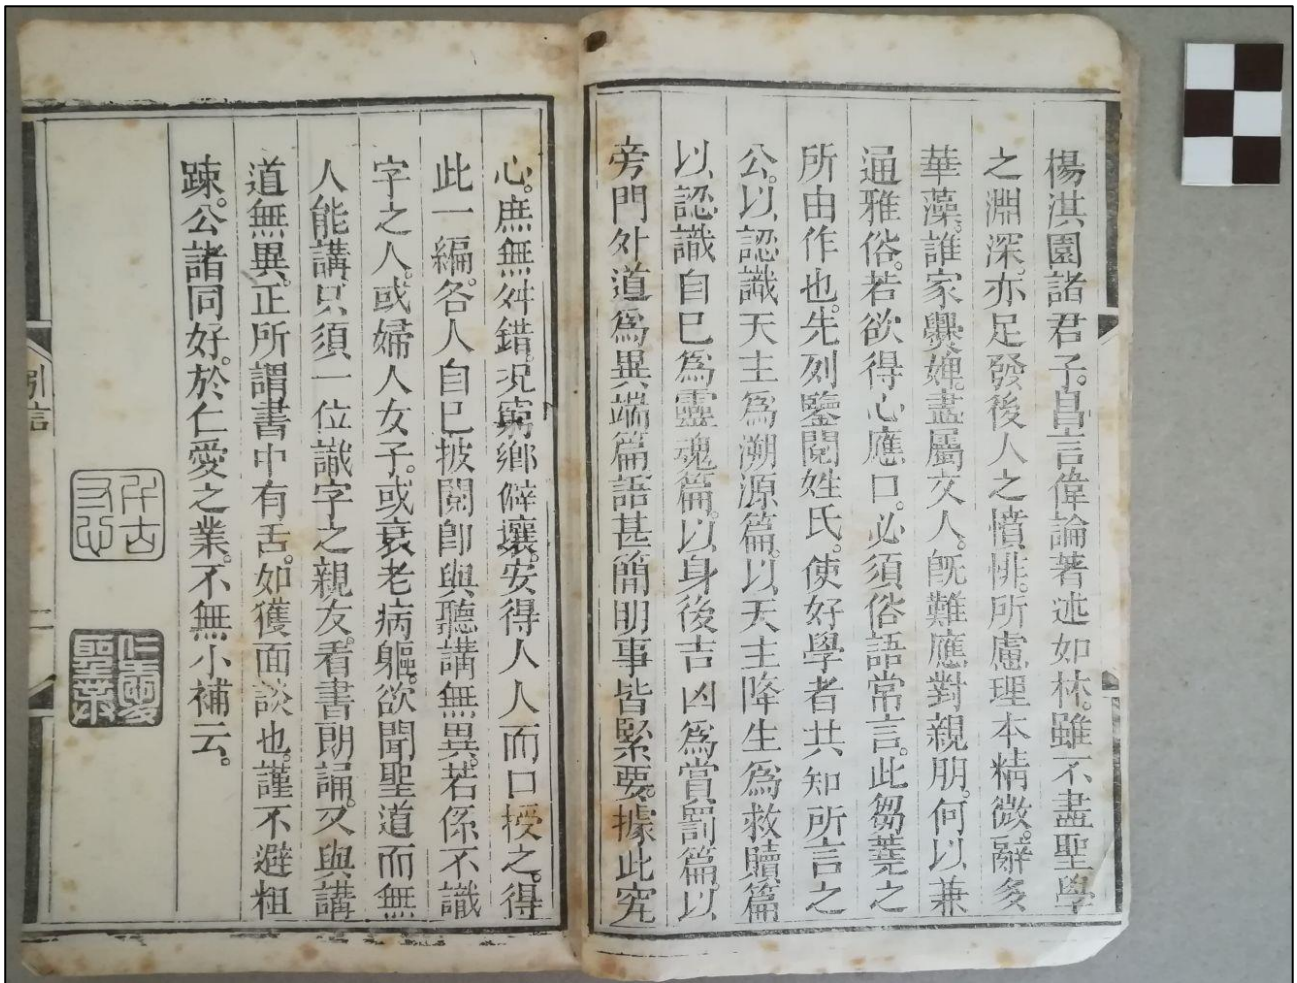 楊淇園諸君子。昌言偉論著述如林。雖不盡聖學
之淵深。亦足發後人之憤悱。所慮理本精微。辭多
華藻。誰家爨婢。盡屬文人。旣難應對親朋。何以兼
通雅俗。若欲得心應口。必須俗語常言。此芻蕘之
所由作也。先列鑒閱姓氏。使好學者共知所言之
公。以認識天主爲溯源篇。以天主降生爲救贖篇
以認識自已爲靈魂篇。以身後吉凶爲賞罰篇。以
旁門外道爲異端篇。語甚簡明。事皆緊要。據此究
心。庶無舛錯。况窮鄉僻壤。安得人人而口授之。得
此一編。各人自已披閱卽與聽講無異。若係不識
字之人。或婦人女子。或衰老病軀。欲聞聖道而無
人能講。只須一位識字之親友。看書朗誦。又與講
道無異。正所謂書中有舌。如獲面談也。謹不避粗
踈。公諸同好。於仁愛之業。不無小補云。
引言
二
仁愛聖業